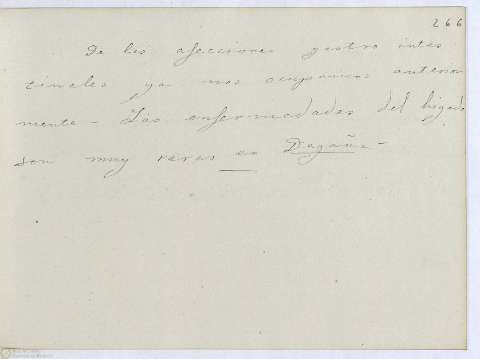 266
De las afecciones gastro intes
tinales ya nos ocupamos anterior
mente - Las enfermedades del higado
son muy raras en